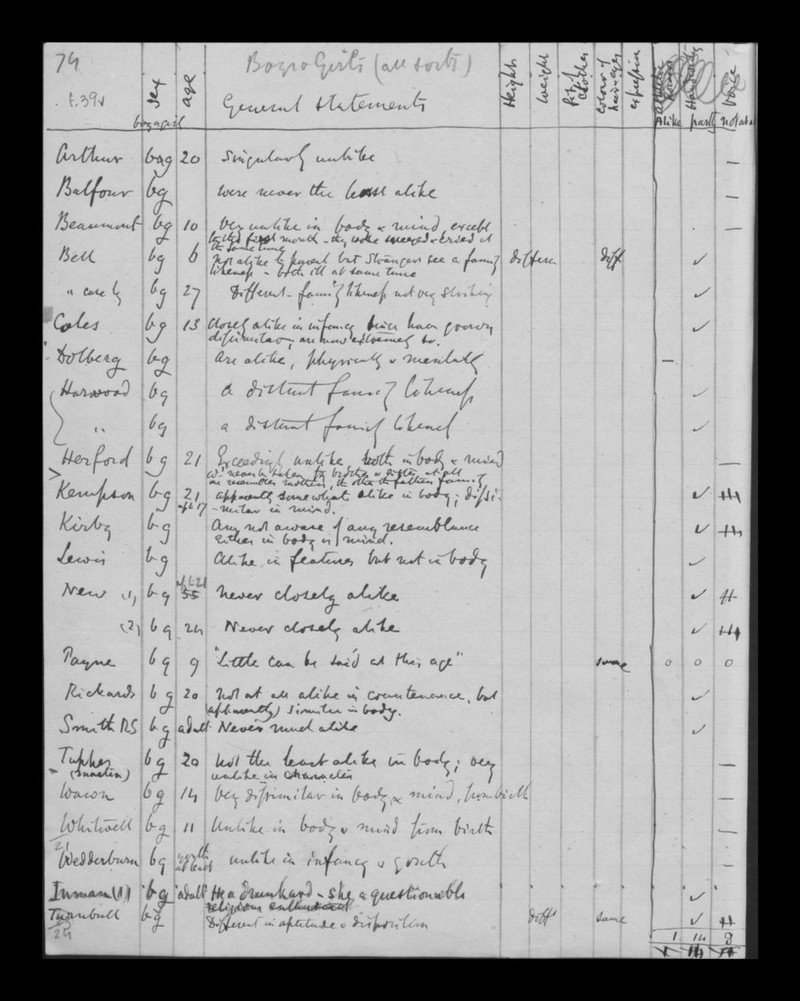 74
f.39v
sex
age
Boys & Girls (all sorts)
General Statements
Height
Weight
Colour of hair & eyes
expression
Voice
boy a girl
Alike
partly
not at all
Arthur bg 20 Singularly unlike —
Balfour bg were never the least alike —
Beaumont bg 10 Very unlike in body & mind, except —
in the first month - they woke sneezed & cried at
the same time
Bell bg 6 Not alike to parent but strangers see a family different diff ✓
likeness - both ill at same time
" case bg 27 Different - family likeness not very striking ✓
Coles bg 13 Closely alike in infancy since have grown ✓
dissimilar, are now extremely so.
Dolberg bg Are alike, physically & mentally —
Harwood bg a distant family likeness ✓
" bg a distant family likeness ✓
Herford bg 21 Exceedingly unlike both in body & mind —
wd never be taken for brother & sister at all
one resembles mother's, the other the father's family
Kempson bg 21 apparently somewhat alike in body; dissi- ✓
-milar in mind.
Kirby bg Am not aware of any resemblance ✓
either in body or mind.
Lewis bg Alike in features but not in body ✓
New (1) bg 55 Never closely alike ✓
(2) bg 24 Never closely alike ✓
Payne bg 9 "Little can be said at this age" same o o o
Rickards bg 20 Not at all alike in countenance, but ✓
(apparently) similar in body.
Smith RS bg adult Never much alike ✓
Tupper bg 20 Not the least alike in body; very —
unlike in character
Wacon bg 14 Very dissimilar in body & mind, from birth —
Whitwell bg 11 Unlike in body & mind from birth —
Wedderburn bg youth at least unlike in infancy & youth —
Inman (1) bg adult He a drunkard - she a questionable ✓
religious enthusiast
Turnbull bg Different in aptitude & disposition diff same ✓
24
1 14 8